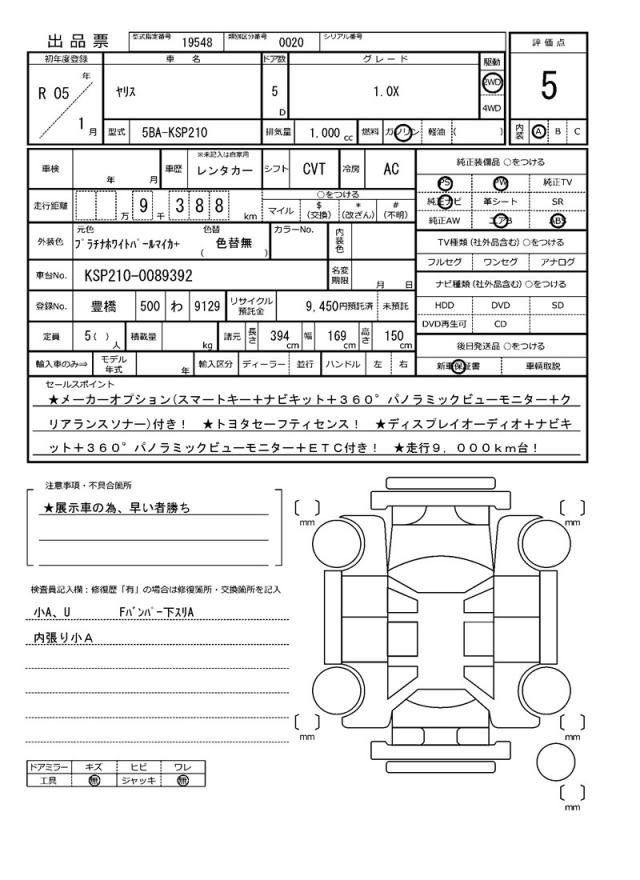 出品票 型式指定番号 19548 類別区分番号 0020 シリアル番号
評価点
5
内装 A B C
初年度登録 車名 ドア数 グレード 駆動
R 05 年 1 月
ヤリス 5 D 1.0X 2WD 4WD
型式 5BA-KSP210 排気量 1,000 cc 燃料 ガソリン 軽油 ( )
車検 年 月 車歴 ※未記入は自家用 レンタカー シフト CVT 冷房 AC
走行距離 万 9 千 3 8 8 km
○をつける
マイル $ (交換) * (改ざん) # (不明)
外装色 元色 プラチナホワイトパールマイカ+ 色替 ( 色替無 ) カラーNo. 内装色
車台No. KSP210-0089392 名変期限 月 日
登録No. 豊橋 500 わ 9129 リサイクル預託金 9,450円預託済 未預託
定員 5( ) 人 積載量 kg 諸元 長さ 394 cm 幅 169 cm 高さ 150 cm
輸入車のみ⇒ モデル年式 年 輸入区分 ディーラー 並行 ハンドル 左 右
純正装備品 ○をつける
PS PW 純正TV
純正ナビ 革シート SR
純正AW エアB ABS
TV種類(社外品含む)○をつける
フルセグ ワンセグ アナログ
ナビ種類(社外品含む)○をつける
HDD DVD SD
DVD再生可 CD
後日発送品 ○をつける
新車保証書 車輌取説
セールスポイント
★メーカーオプション(スマートキー+ナビキット+360°パノラミックビューモニター+ク
リアランスソナー)付き! ★トヨタセーフティセンス! ★ディスプレイオーディオ+ナビキ
ット+360°パノラミックビューモニター+ETC付き! ★走行9,000km台!
注意事項・不具合箇所
★展示車の為、早い者勝ち
検査員記入欄:修復歴「有」の場合は修復箇所・交換箇所を記入
小A、U Fバンパー下スリA
内張り小A
ドアミラー キズ ヒビ ワレ
工具 無 ジャッキ 無
mm
mm
mm
mm
mm